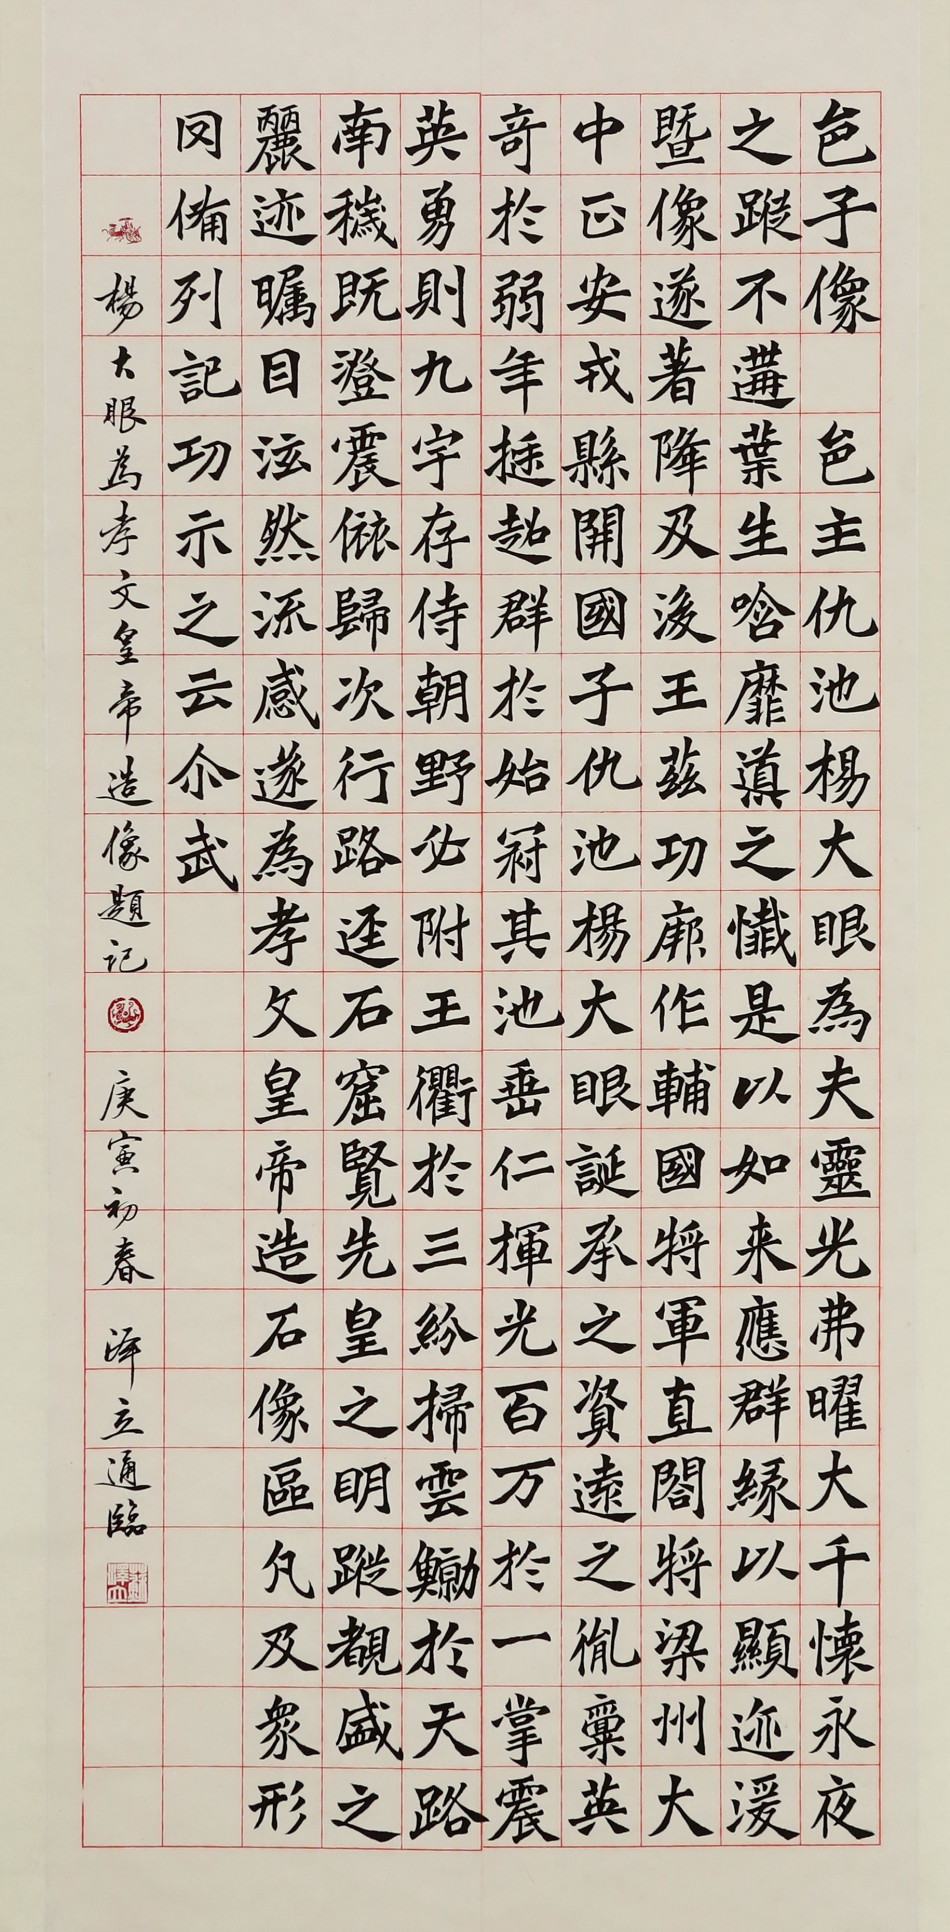 邑子像 邑主仇池楊大眼為夫靈光弗曜大千懷永夜
之蹤不遘葉生唅靡道之懺是以如来應群緣以顯迹湲
暨像遂著降及後王茲功廓作輔國将軍直閤将梁州大
中正安戎縣開國子仇池楊大眼誕承之資遠之胤稟英
奇於弱年挺超群於始冠其池垂仁揮光百万於一掌震
英勇則九宇存侍朝野必附王衢於三紛掃雲鯨於天路
南穢既澄震旅歸次行路逕石窟覽先皇之明蹤覩盛之
麗迹矚目泫然流感遂為孝文皇帝造石像區凡及眾形
罔備列記功示之云尒武
楊大眼為孝文皇帝造像題记
庚寅初春
泽立通臨